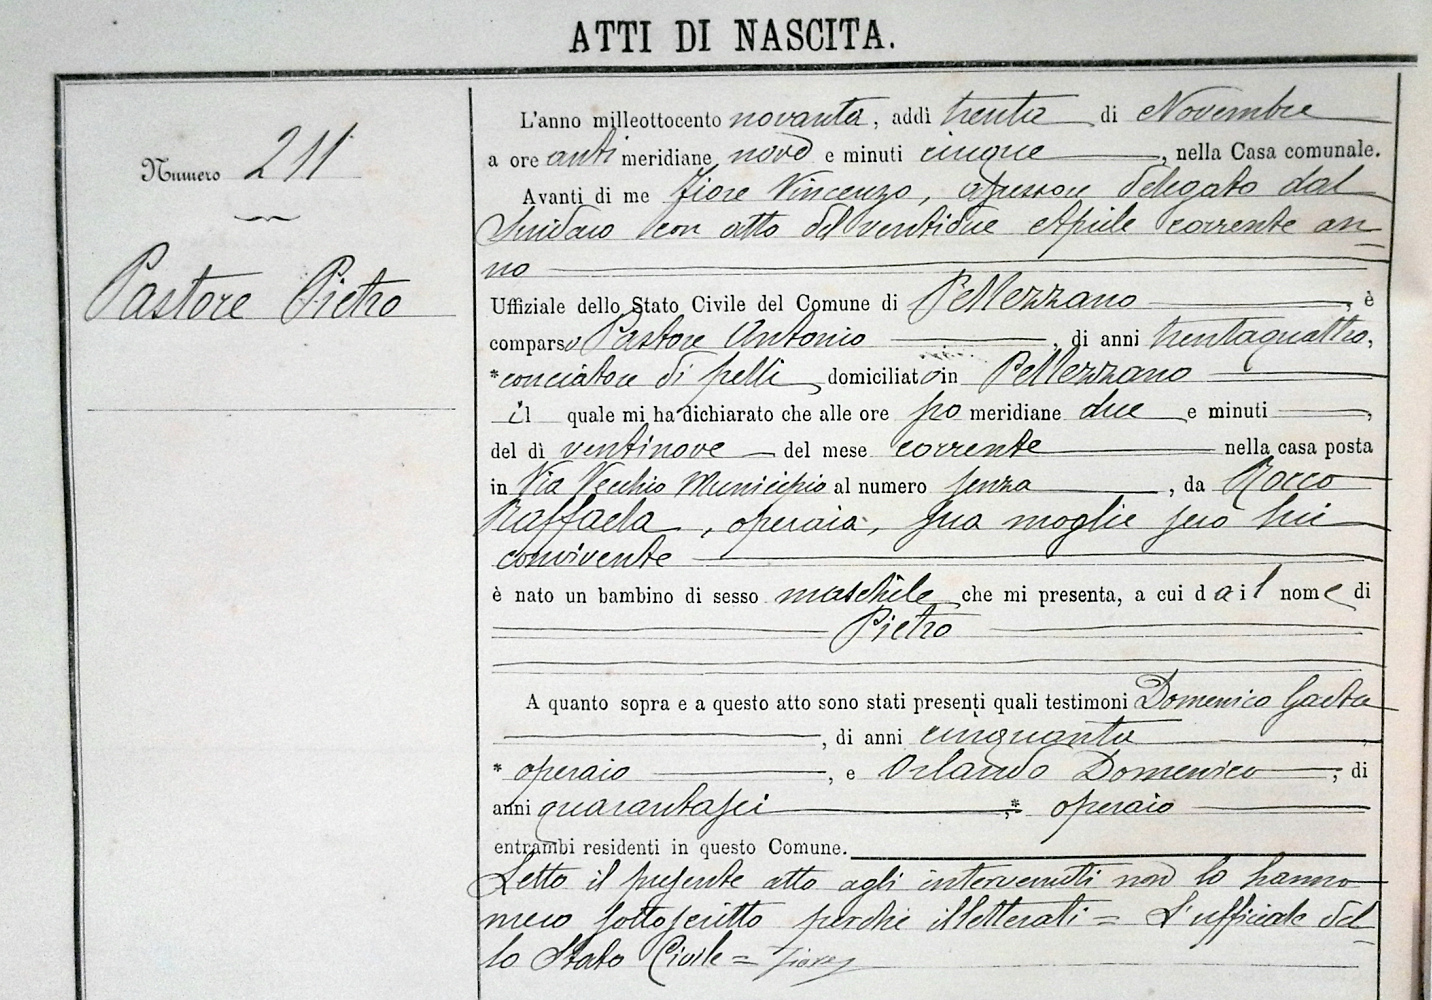 ATTI DI NASCITA.
Numero 211
Pastore Pietro
L'anno milleottocento novanta, addì trenta di Novembre
a ore anti meridiane nove e minuti cinque, nella Casa comunale.
Avanti di me Fiore Vincenzo, assessore delegato dal
Sindaco con atto del ventidue Aprile corrente an=
no
Uffiziale dello Stato Civile del Comune di Pellezzano, è
comparso Pastore Antonio, di anni trentaquattro,
*conciatore di pelli domiciliato in Pellezzano
il quale mi ha dichiarato che alle ore po meridiane due e minuti,
del dì ventinove del mese corrente nella casa posta
in Via Vecchio Municipio al numero senza, da Rocco
Raffaela, operaia, sua moglie seco lui
convivente
è nato un bambino di sesso maschile che mi presenta, a cui da il nome di
Pietro
A quanto sopra e a questo atto sono stati presenti quali testimoni Domenico Gaeta
, di anni cinquanta
* operaio, e Orlando Domenico, di
anni quarantasei,* operaio
entrambi residenti in questo Comune.
Letto il presente atto agli intervenuti non lo hanno
meco sottoscritto perché illetterati = L'ufficiale del=
lo Stato Civile = Fiore